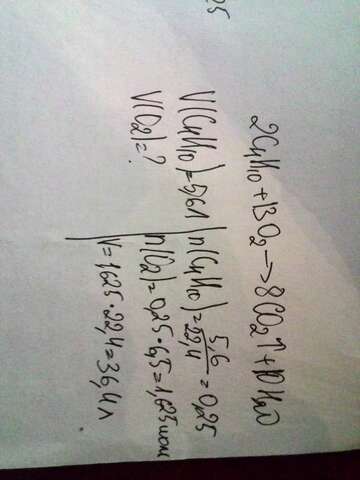 25
2C₄H₁₀ + 13O₂ → 8CO₂↑ + 10H₂O
V(C₄H₁₀) = 5,6л | n(C₄H₁₀) = 5,6/22,4 = 0,25
V(O₂) = ? | n(O₂) = 0,25 · 6,5 = 1,625 моль
V = 1,625 · 22,4 = 36,4 л